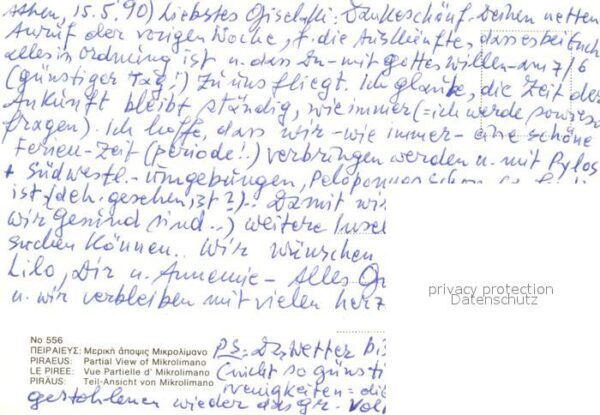 Athen, 15.5.90) Liebstes Giselchi: Dankeschön f. Deinen netten
Anruf der vorigen Woche, f. die Auskünfte, dass es bei Euch
alles in Ordnung ist u. dass Du - mit Gottes Willen - am 7/6
(günstiger Tag!) zu uns fliegt. Ich glaube, die Zeit der
Ankunft bleibt ständig, wie immer (= ich werde sowieso
fragen). Ich hoffe, dass wir - wie immer - eine schöne
Ferien-Zeit (Periode!.) verbringen werden u. mit Pylos
+ Südwestl.-Umgebungen, Peloponnes
ist (deh. gesehen, ist?).. Damit wir
wir gesund sind..) weitere Insel
suchen können.. Wir wünschen
Lilo, Dir u. Annemie - Alles
u. wir verbleiben mit vielen herz
privacy protection
Datenschutz
No 556
ΠΕΙΡΑΙΕΥΣ: Μερική άποψις Μικρολίμανο
PIRAEUS: Partial View of Mikrolimano
LE PIREE: Vue Partielle d' Mikrolimano
PIRÄUS: Teil-Ansicht von Mikrolimano
PS: D. Wetter
(nicht so günsti
wenigkeiten = die
gestohlenen wieder das gr. Vol